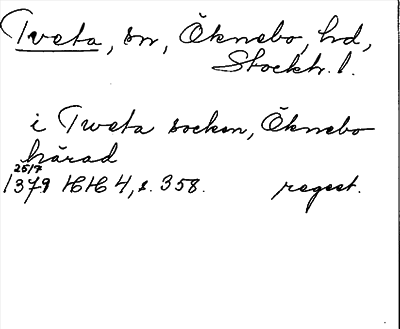 Tveta, sn, Öknebo, hd,
Stockh. l.
i Tweta socken, Öknebo
härad
25/7
1379 HH 4, s. 358. regest.